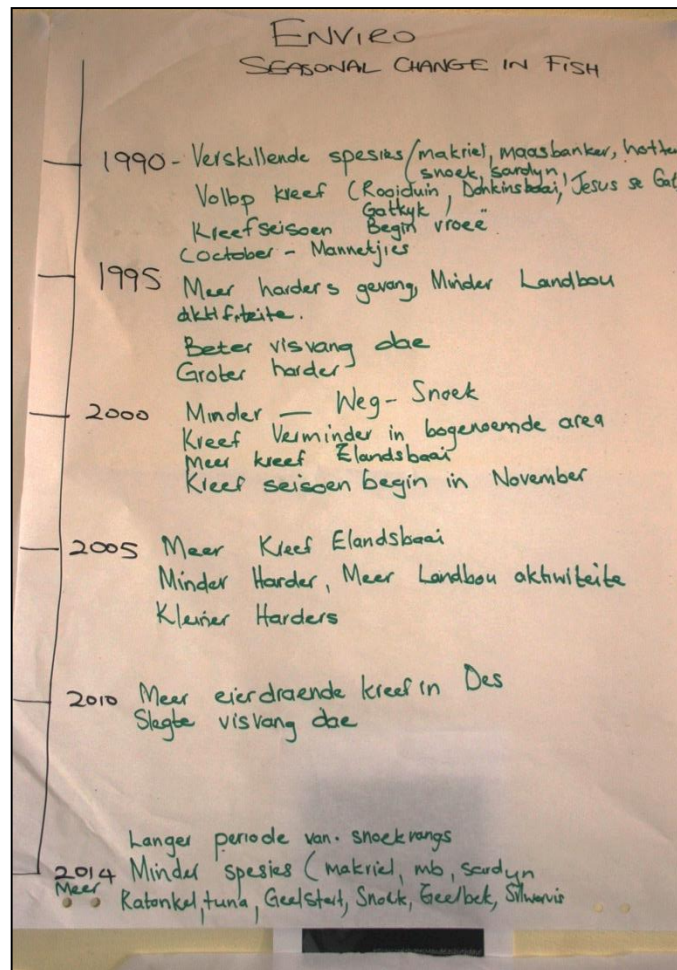 ENVIRO
SEASONAL CHANGE IN FISH
1990 - Verskillende spesies (makriel, maasbanker, hotte
(snoek, sardyn,
Volop kreef (Rooiduin, Donkinsbaai, Jesus se Gat
Gatkyk)
Kreefseisoen Begin vroeë
(October - Mannetjies
1995 Meer harders gevang, Minder Landbou
Beter visvang dae
Groter harder
2000 Minder — Weg - Snoek
Kreef Verminder in bogenoemde area
Meer kreef Elandsbaai
Kreef seisoen begin in November
2005 Meer Kreef Elandsbaai
Minder Harder, Meer Landbou aktiwiteite
Kleiner Harders
2010 Meer eierdraende kreef in Des
Slegte visvang dae
Langer periode van. snoekvangs
2014 Minder spesies (makriel, mb, sardyn
Meer Katonkel, tuna, Geelstert, Snoek, Geelbek, Silwervis